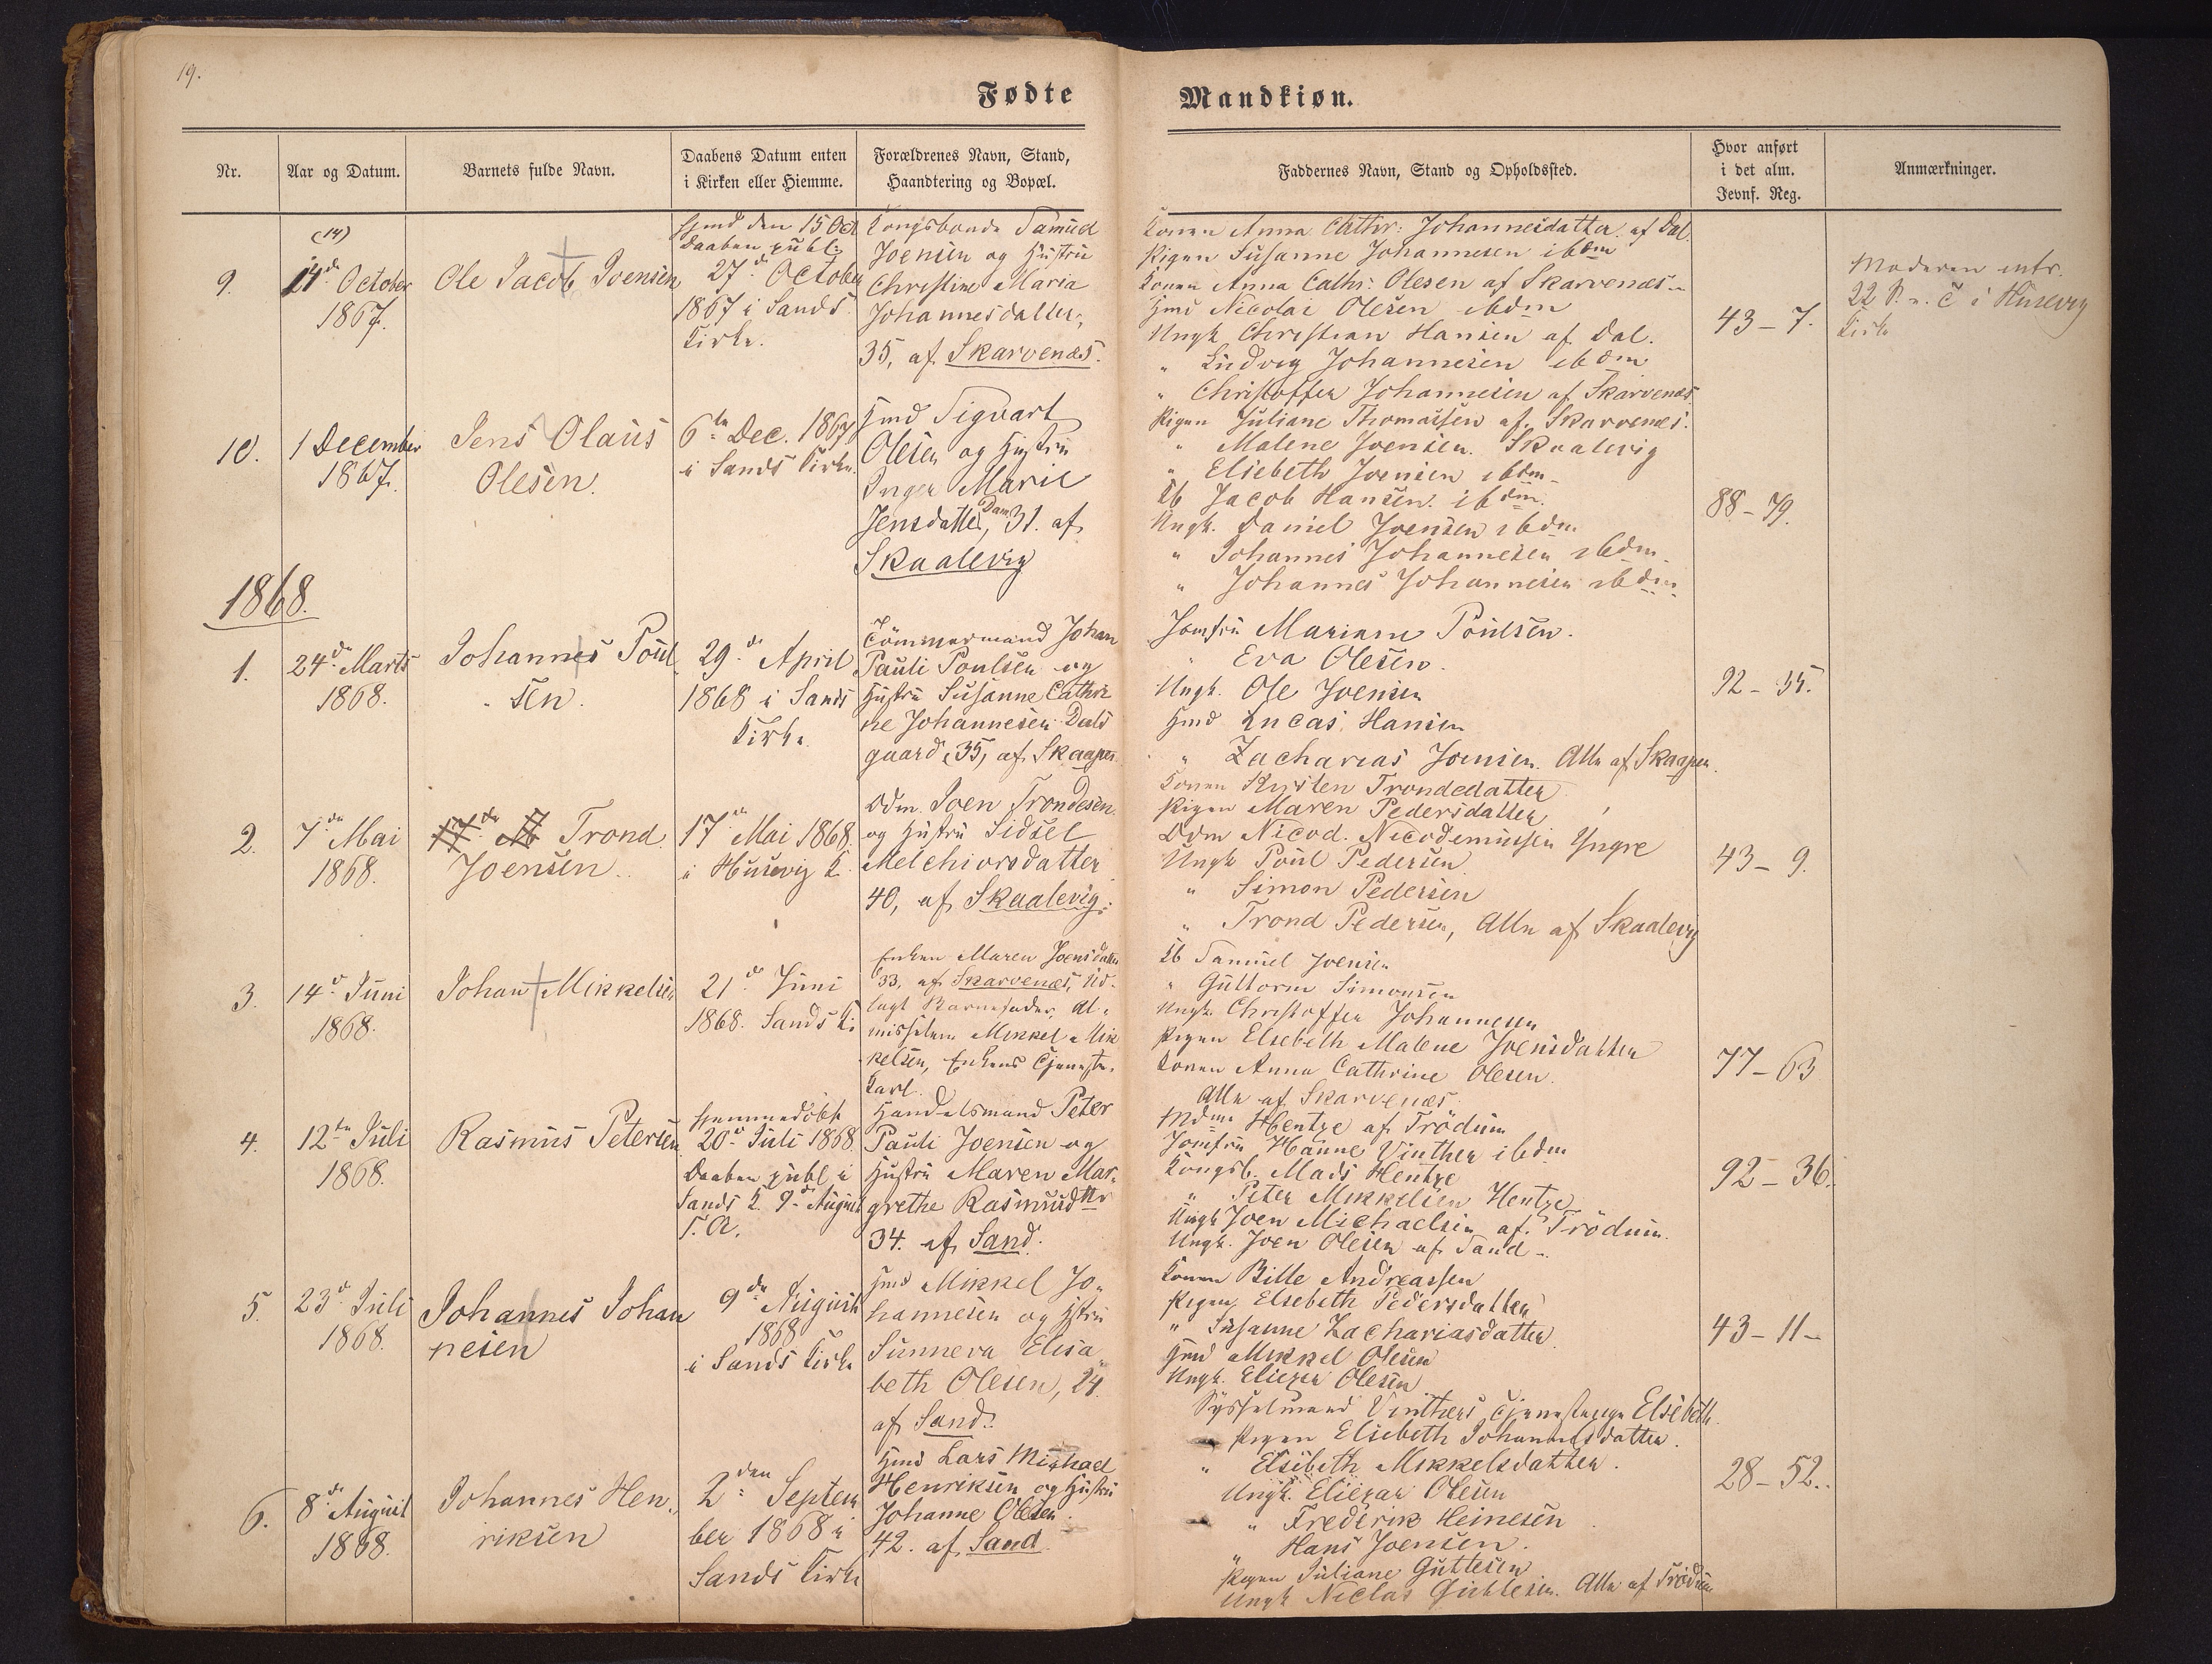 19.
Fødte
Mandkiøn.
Nr.
Aar og Datum.
Barnets fulde Navn.
Daabens Datum enten
i Kirken eller Hiemme.
Forældrenes Navn, Stand,
Haandtering og Bopæl.
Faddernes Navn, Stand og Opholdssted.
Hvor anført
i det alm.
Jevnf. Reg.
Anmærkninger.
9.
(14)
14de October
1867.
Ole Jacob Joensen
hjmd den 15 Oct
Daaben publ:
27de October
1867 i Sands
Kirke.
Kongsbonde Samuel
Joensen og Hustru
Christine Maria
Johannesdatter,
35, af Skarvenæs.
Konen Anna Cathr: Johannesdatter af Dal.
Pigen Susanne Johannesen ibdm
Konen Anna Cathr: Olesen af Skarvenæs
Hmd Nicolai Olesen ibdm
Ungk Christian Hansen af Dal.
" Ludvig Johannesen ibdm
" Christoffer Johannesen af Skarvenæs
43 - 7.
Moderen intr.
22 S. e. T. i Husevig
Kirke
10.
1 December
1867.
Jens Olaus
Olesen.
6te Dec. 1867
i Sands Kirke.
Hmd Sigvart
Olesen og Hustru
Inger Marie
Jensdatter, 31. af
Skaalevig
Pigen Juliane Thomassen af Skarvenæs.
" Malene Joensen. Skaalevig
" Elsebeth Joensen ibdm
Kb Jacob Hansen. ibdm.
Ungk. Daniel Joensen ibdm
" Johannes Johannesen ibdm
" Johannes Johannesen ibdm
88 - 79.
1868.
1.
24de Marts
1868.
Johannes Poul
sen.
29de April
1868 i Sands
Kirke.
Tömmermand Johan
Pauli Poulsen og
Hustru Susanne Cathri
ne Johannesen Dals
gaard, 35, af Skaapen
Jomfru Mariane Poulsen.
" Eva Olesen.
Ungk. Ole Joensen
Hmd Lucas Hansen
" Zacharias Joensen. Alle af Skaapen.
92 - 35.
2.
7de Mai
1868.
Trond
Joensen.
17de Mai 1868.
i Husevig K.
Odm. Joen Trondesen
og Hustru Sidsel
Melchiorsdatter
40, af Skaalevig.
Konen Kirsten Trondedatter
Pigen Maren Pedersdatter
Odm Nicod. Nicodemussen Yngre
Ungk Poul Pedersen
" Simon Pedersen
" Trond Pedersen, Alle af Skaalevig
43 - 9.
3.
14de Juni
1868.
Johan Mikkelsen
21de Juni
1868. Sands Ki
Enken Maren Joensdatter
33, af Skarvenæs, Ud-
lagt Barnefader, Al-
misselem Mikkel Mik
kelsen, Enkens Tjeneste-
karl.
Kb Samuel Joensen
" Guttorm Simonsen
Ungk. Christoffer Johannesen
Pigen Elsebeth Malene Joensdatter
Konen Anna Cathrine Olesen.
Alle af Skarvenæs.
77 - 63
4.
12te Juli
1868.
Rasmus Petersen
hjemmedöbt
20de Juli 1868.
Daaben publ i
Sands K. 9de August
s. A.
Handelsmand Peter
Pauli Joensen og
Hustru Maren Mar-
grethe Rasmusdtter
34. af Sand.
Mdme Hentze af Trödum
Jomfru Hanne Vinther ibdm
Kongsb. Mads Hentze
" Peter Mikkelsen Hentze
Ungk Joen Michaelsen af Trödum.
Ungk. Joen Olesen af Sand.
92 - 36.
5.
23de Juli
1868.
Johannes Johan
nesen
9de August
1868
i Sands Kirke
Hmd Mikkel Jo-
hannesen og Hstru
Sunneva Elisa
beth Olesen, 24.
af Sand.
Konen Bille Andreassen
Pigen Elsebeth Pedersdatter
" Susanne Zachariasdatter
Hmd Mikkel Olesen
Ungk. Eliezer Olesen
43 - 11 -
6.
8de August
1868.
Johannes Hen-
riksen
2den Septem
ber 1868 i
Sands Kirke
Hmd Lars Michael
Henriksen og Hustru
Johanne Olesen.
42. af Sand.
Sysselmand Vinthers Tjenestepige Elsebeth
Pigen Elsebeth Johannesdatter.
" Elsebeth Mikkelsdatter.
Ungk. Eliezar Olesen
" Frederik Heinesen
" Hans Joensen.
Pigen Juliane Guttesen
Ungk Niclas Alle af Trödum
28 - 52.